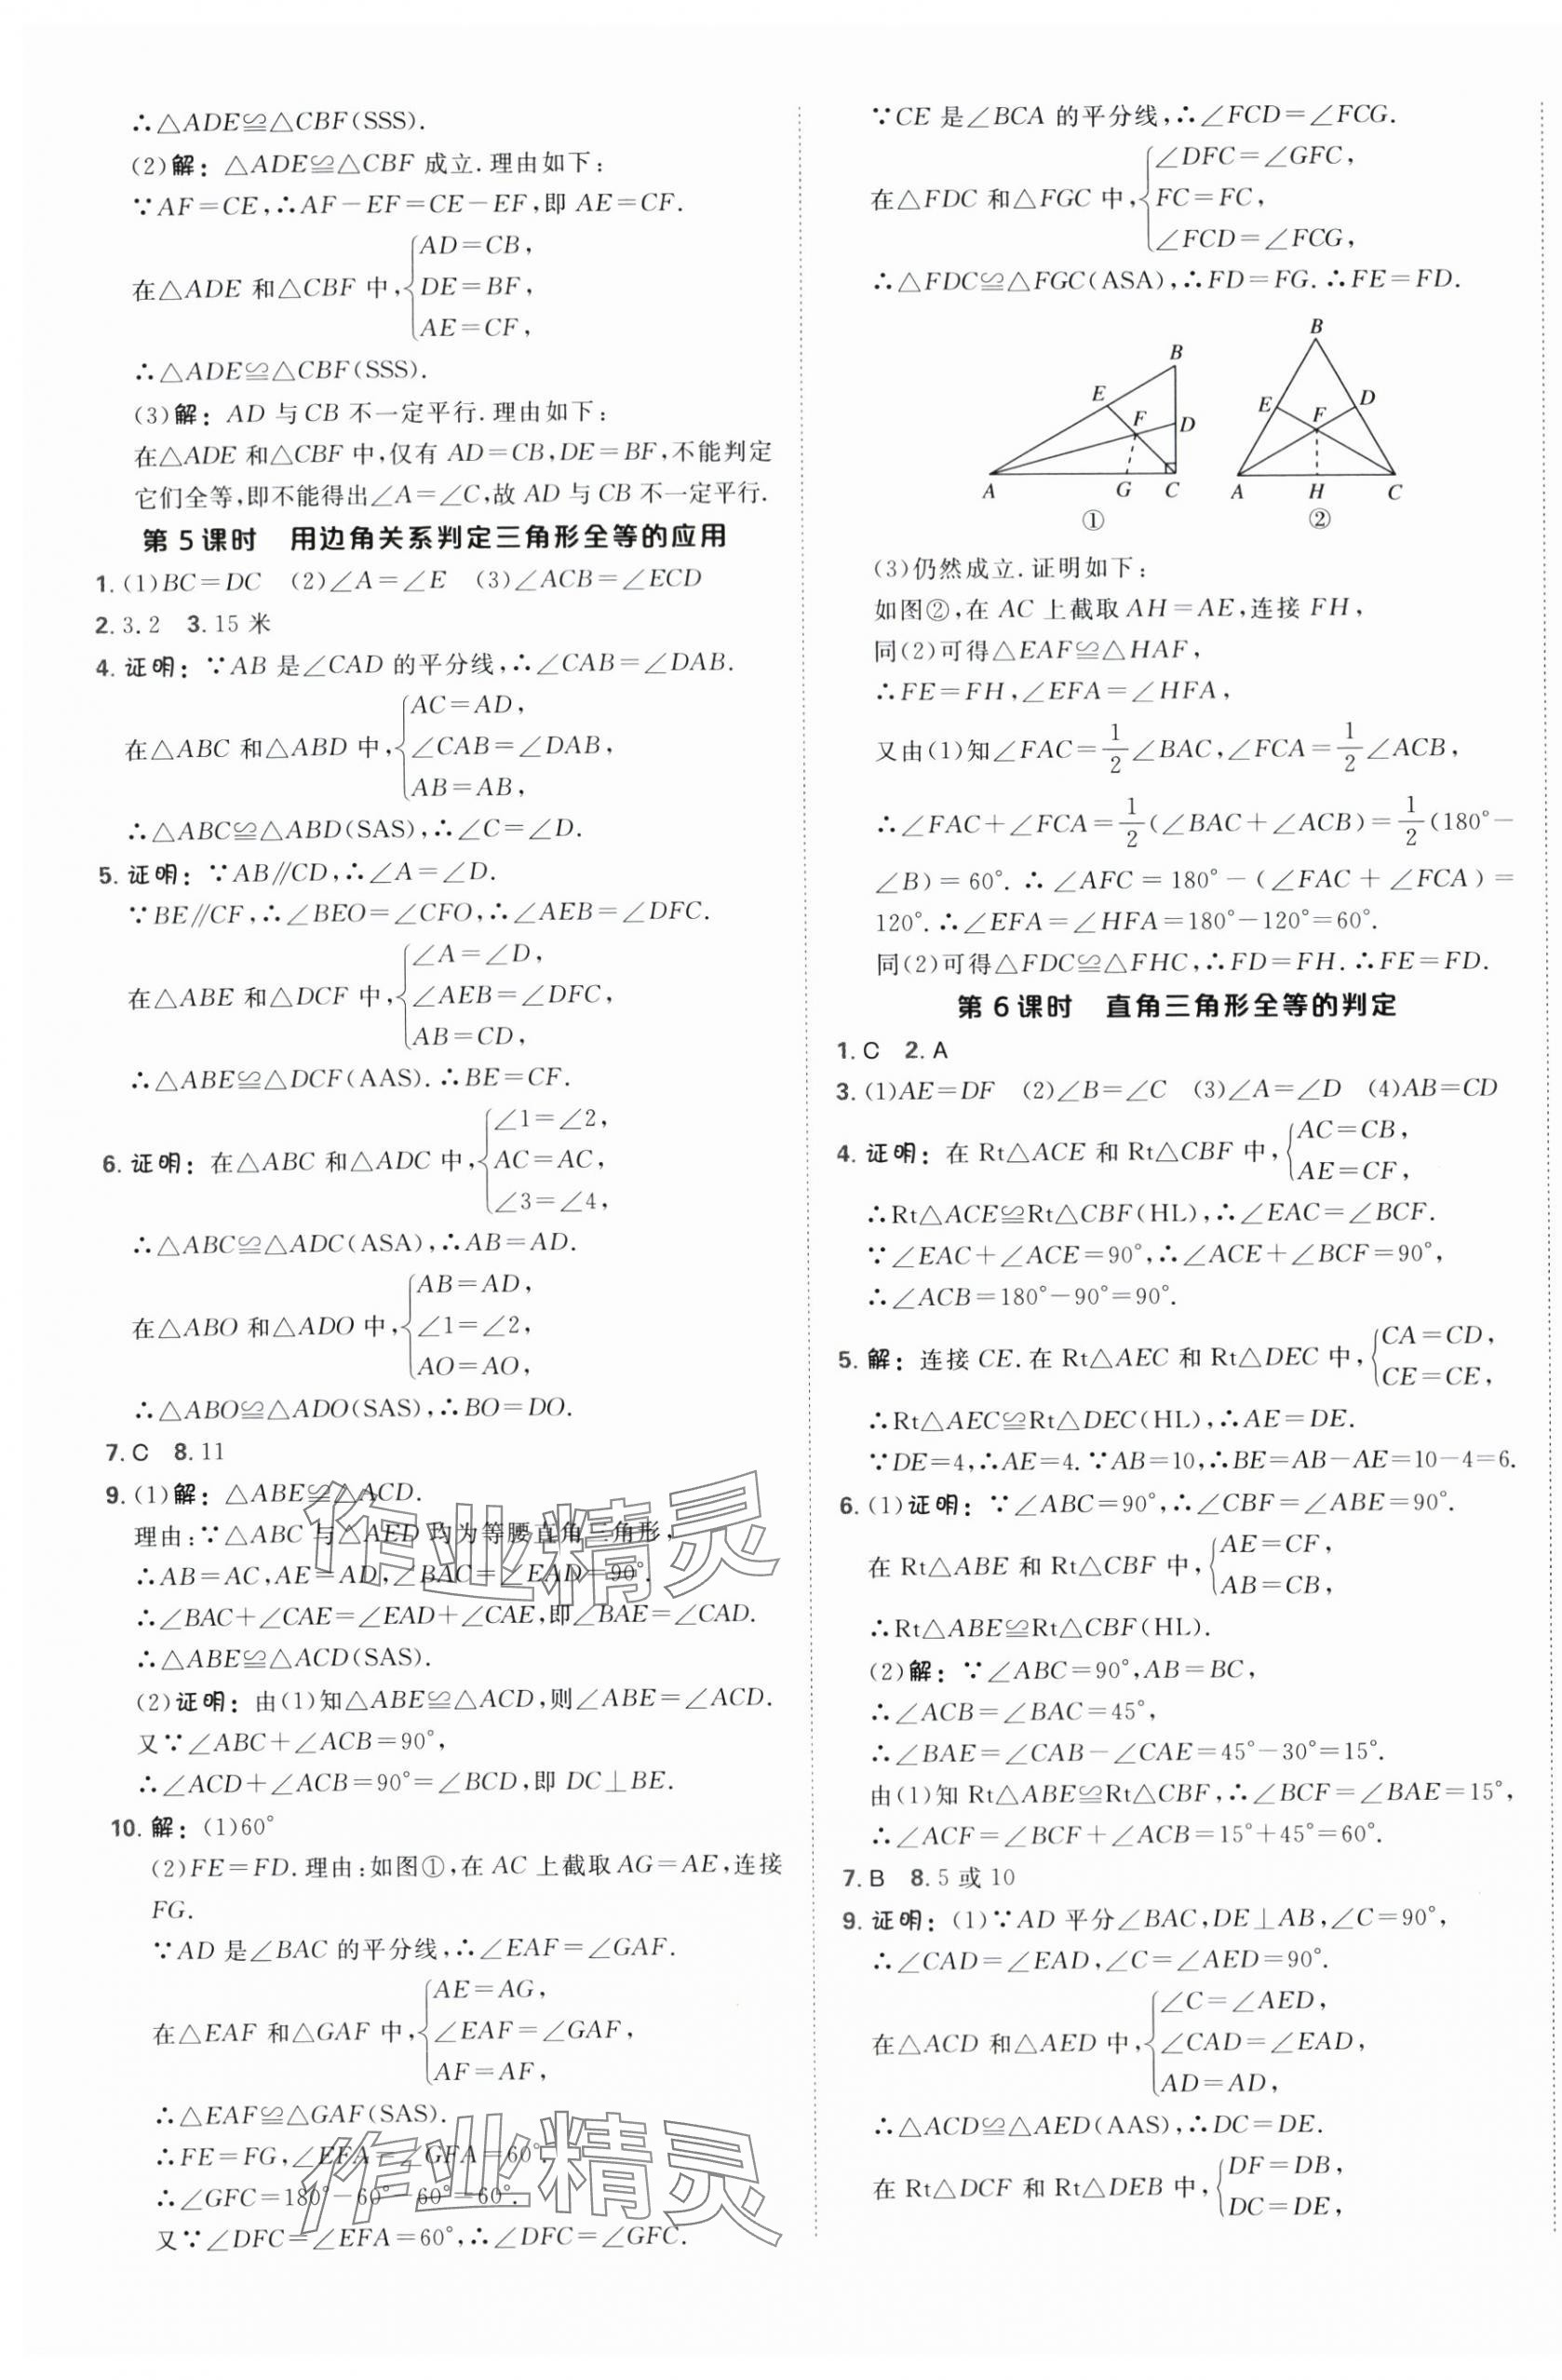 ∴△ADE≌△CBF(SSS).
(2)解：△ADE≌△CBF 成立.理由如下：
∵AF=CE,∴AF-EF=CE-EF,即 AE=CF.
AD=CB,
在△ADE 和△CBF 中,{DE=BF,
AE=CF,
∴△ADE≌△CBF(SSS).
(3)解：AD 与 CB 不一定平行.理由如下：
在△ADE 和△CBF 中,仅有 AD=CB,DE=BF,不能判定
它们全等,即不能得出∠A=∠C,故 AD 与 CB 不一定平行.
第 5 课时　用边角关系判定三角形全等的应用
1.(1)BC=DC　(2)∠A=∠E　(3)∠ACB=∠ECD
2.3.2　3.15 米
4.证明：∵AB 是∠CAD 的平分线,∴∠CAB=∠DAB.
AC=AD,
在△ABC 和△ABD 中,{∠CAB=∠DAB,
AB=AB,
∴△ABC≌△ABD(SAS),∴∠C=∠D.
5.证明：∵AB∥CD,∴∠A=∠D.
∵BE∥CF,∴∠BEO=∠CFO,∴∠AEB=∠DFC.
∠A=∠D,
在△ABE 和△DCF 中,{∠AEB=∠DFC,
AB=CD,
∴△ABE≌△DCF(AAS).∴BE=CF.
∠1=∠2,
6.证明：在△ABC 和△ADC 中,{AC=AC,
∠3=∠4,
∴△ABC≌△ADC(ASA),∴AB=AD.
AB=AD,
在△ABO 和△ADO 中,{∠1=∠2,
AO=AO,
∴△ABO≌△ADO(SAS),∴BO=DO.
7.C　8.11
9.(1)解：△ABE≌△ACD.
理由:∵△ABC 与△AED 均为等腰直角三角形,
∴AB=AC,AE=AD,∠BAC=∠EAD=90°.
∴∠BAC+∠CAE=∠EAD+∠CAE,即∠BAE=∠CAD.
∴△ABE≌△ACD(SAS).
(2)证明：由(1)知△ABE≌△ACD,则∠ABE=∠ACD.
又∵∠ABC+∠ACB=90°,
∴∠ACD+∠ACB=90°=∠BCD,即 DC⊥BE.
10.解：(1)60°
(2)FE=FD.理由:如图①,在 AC 上截取 AG=AE,连接
FG.
∵AD 是∠BAC 的平分线,∴∠EAF=∠GAF.
AE=AG,
在△EAF 和△GAF 中,{∠EAF=∠GAF,
AF=AF,
∴△EAF≌△GAF(SAS).
∴FE=FG,∠EFA=∠GFA=60°.
∴∠GFC=180°-60°-60°=60°.
又∵∠DFC=∠EFA=60°,∴∠DFC=∠GFC.
∵CE 是∠BCA 的平分线,∴∠FCD=∠FCG.
∠DFC=∠GFC,
在△FDC 和△FGC 中,{FC=FC,
∠FCD=∠FCG,
∴△FDC≌△FGC(ASA),∴FD=FG.∴FE=FD.
B
E
F
D
A
G
C
①
B
E
F
D
A
H
C
②
(3)仍然成立.证明如下：
如图②,在 AC 上截取 AH=AE,连接 FH,
同(2)可得△EAF≌△HAF,
∴FE=FH,∠EFA=∠HFA,
又由(1)知∠FAC=1/2∠BAC,∠FCA=1/2∠ACB,
∴∠FAC+∠FCA=1/2(∠BAC+∠ACB)=1/2(180°-
∠B)=60°.∴∠AFC=180°-(∠FAC+∠FCA)=
120°.∴∠EFA=∠HFA=180°-120°=60°.
同(2)可得△FDC≌△FHC,∴FD=FH.∴FE=FD.
第 6 课时　直角三角形全等的判定
1.C　2.A
3.(1)AE=DF　(2)∠B=∠C　(3)∠A=∠D　(4)AB=CD
4.证明：在 Rt△ACE 和 Rt△CBF 中,{AC=CB,
AE=CF,
∴Rt△ACE≌Rt△CBF(HL),∴∠EAC=∠BCF.
∵∠EAC+∠ACE=90°,∴∠ACE+∠BCF=90°,
∴∠ACB=180°-90°=90°.
5.解：连接 CE.在 Rt△AEC 和 Rt△DEC 中,{CA=CD,
CE=CE,
∴Rt△AEC≌Rt△DEC(HL),∴AE=DE.
∵DE=4,∴AE=4.∵AB=10,∴BE=AB-AE=10-4=6.
6.(1)证明：∵∠ABC=90°,∴∠CBF=∠ABE=90°.
在 Rt△ABE 和 Rt△CBF 中,{AE=CF,
AB=CB,
∴Rt△ABE≌Rt△CBF(HL).
(2)解：∵∠ABC=90°,AB=BC,
∴∠ACB=∠BAC=45°,
∴∠BAE=∠CAB-∠CAE=45°-30°=15°.
由(1)知 Rt△ABE≌Rt△CBF,∴∠BCF=∠BAE=15°,
∴∠ACF=∠BCF+∠ACB=15°+45°=60°.
7.B　8.5 或 10
9.证明：(1)∵AD 平分∠BAC,DE⊥AB,∠C=90°,
∴∠CAD=∠EAD,∠C=∠AED=90°.
∠C=∠AED,
在△ACD 和△AED 中,{∠CAD=∠EAD,
AD=AD,
∴△ACD≌△AED(AAS),∴DC=DE.
在 Rt△DCF 和 Rt△DEB 中,{DF=DB,
DC=DE,
作业精灵
作业精灵